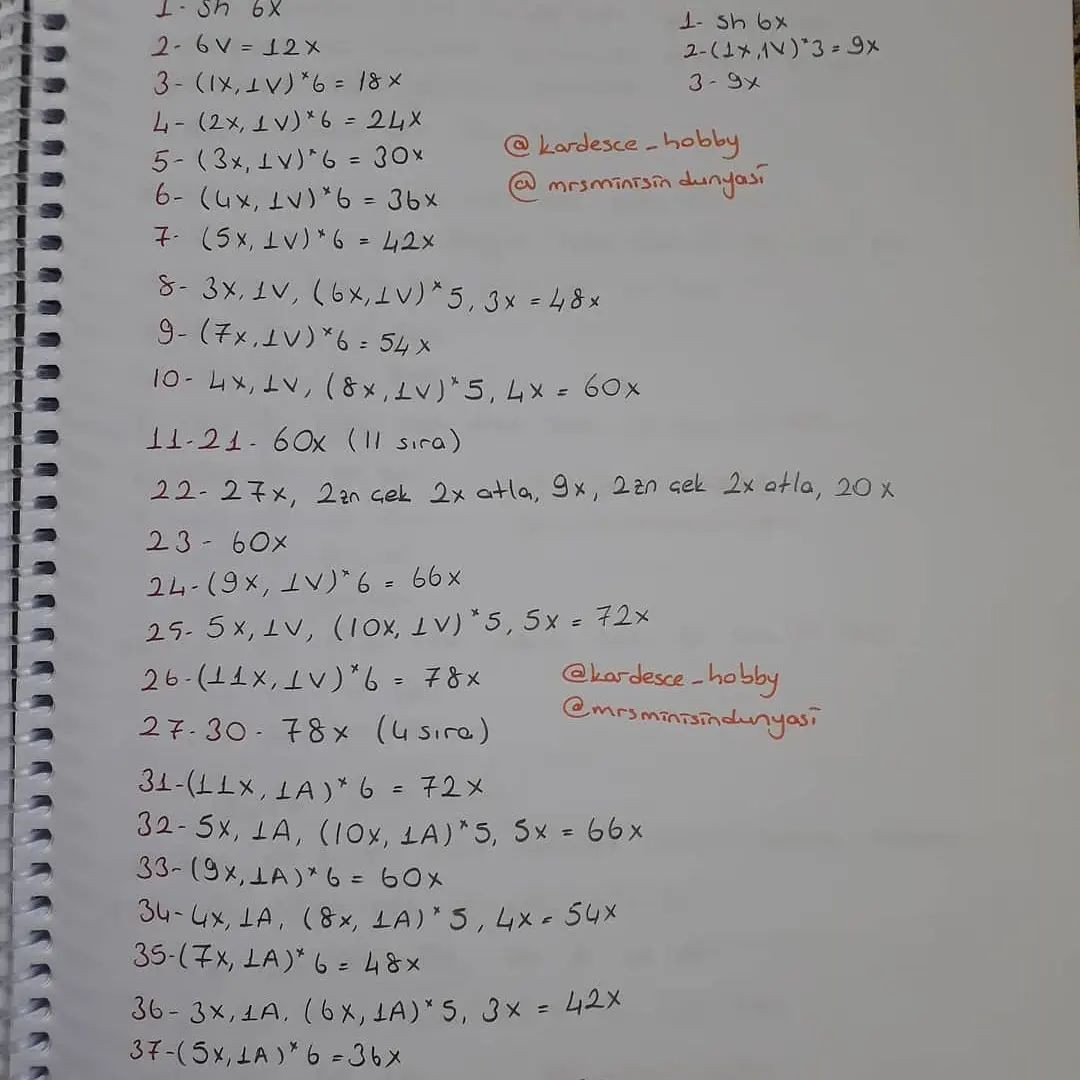 1- sh 6x
2- 6V = 12x
3- (1x, 1V)*6 = 18x
4- (2x, 1V)*6 = 24x
5- (3x, 1V)*6 = 30x
6- (4x, 1V)*6 = 36x
7- (5x, 1V)*6 = 42x
8- 3x, 1V, (6x, 1V)*5, 3x = 48x
9- (7x, 1V)*6 = 54x
10- 4x, 1V, (8x, 1V)*5, 4x = 60x
11-21- 60x (11 sıra)
22- 27x, 2zn çek 2x atla, 9x, 2zn çek 2x atla, 20x
23- 60x
24-(9x, 1V)*6 = 66x
25- 5x, 1V, (10x, 1V)*5, 5x = 72x
26-(11x, 1V)*6 = 78x
27-30- 78x (4 sıra)
31-(11x, 1A)*6 = 72x
32- 5x, 1A, (10x, 1A)*5, 5x = 66x
33-(9x, 1A)*6 = 60x
34-4x, 1A, (8x, 1A)*5, 4x = 54x
35-(7x, 1A)*6 = 48x
36- 3x, 1A, (6x, 1A)*5, 3x = 42x
37-(5x, 1A)*6 = 36x
1- sh 6x
2-(1x, 1V)*3 = 9x
3- 9x
@kardesce_hobby
@mrsminisindunyasi
@kardesce_hobby
@mrsminisindunyasi